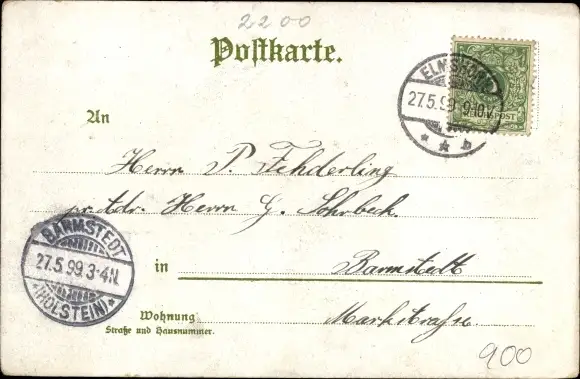 2200
Postkarte.
ELMSHORN
27.5.99 9-10V
REICHSPOST
An
Herrn P. Fehderling
pr. Adr. Herrn G. Sohrbeck.
BARMSTEDT
27.5.99 3-4N.
(HOLSTEIN)
in Barmstedt
Wohnung Markstrasse
Straße und Hausnummer.
900